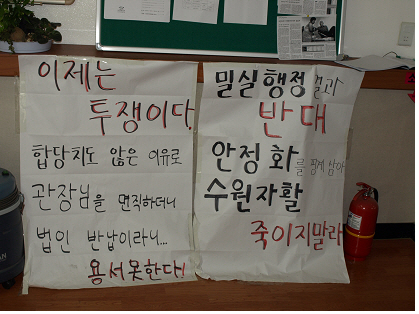 이제는
투쟁이다.
합당치도 않은 이유로
관장님을 면직하더니
법인 반납이라니...
용서못한다!
밀실행정 결과
반대
안정화를 핑계 삼아
수원자활
죽이지말라